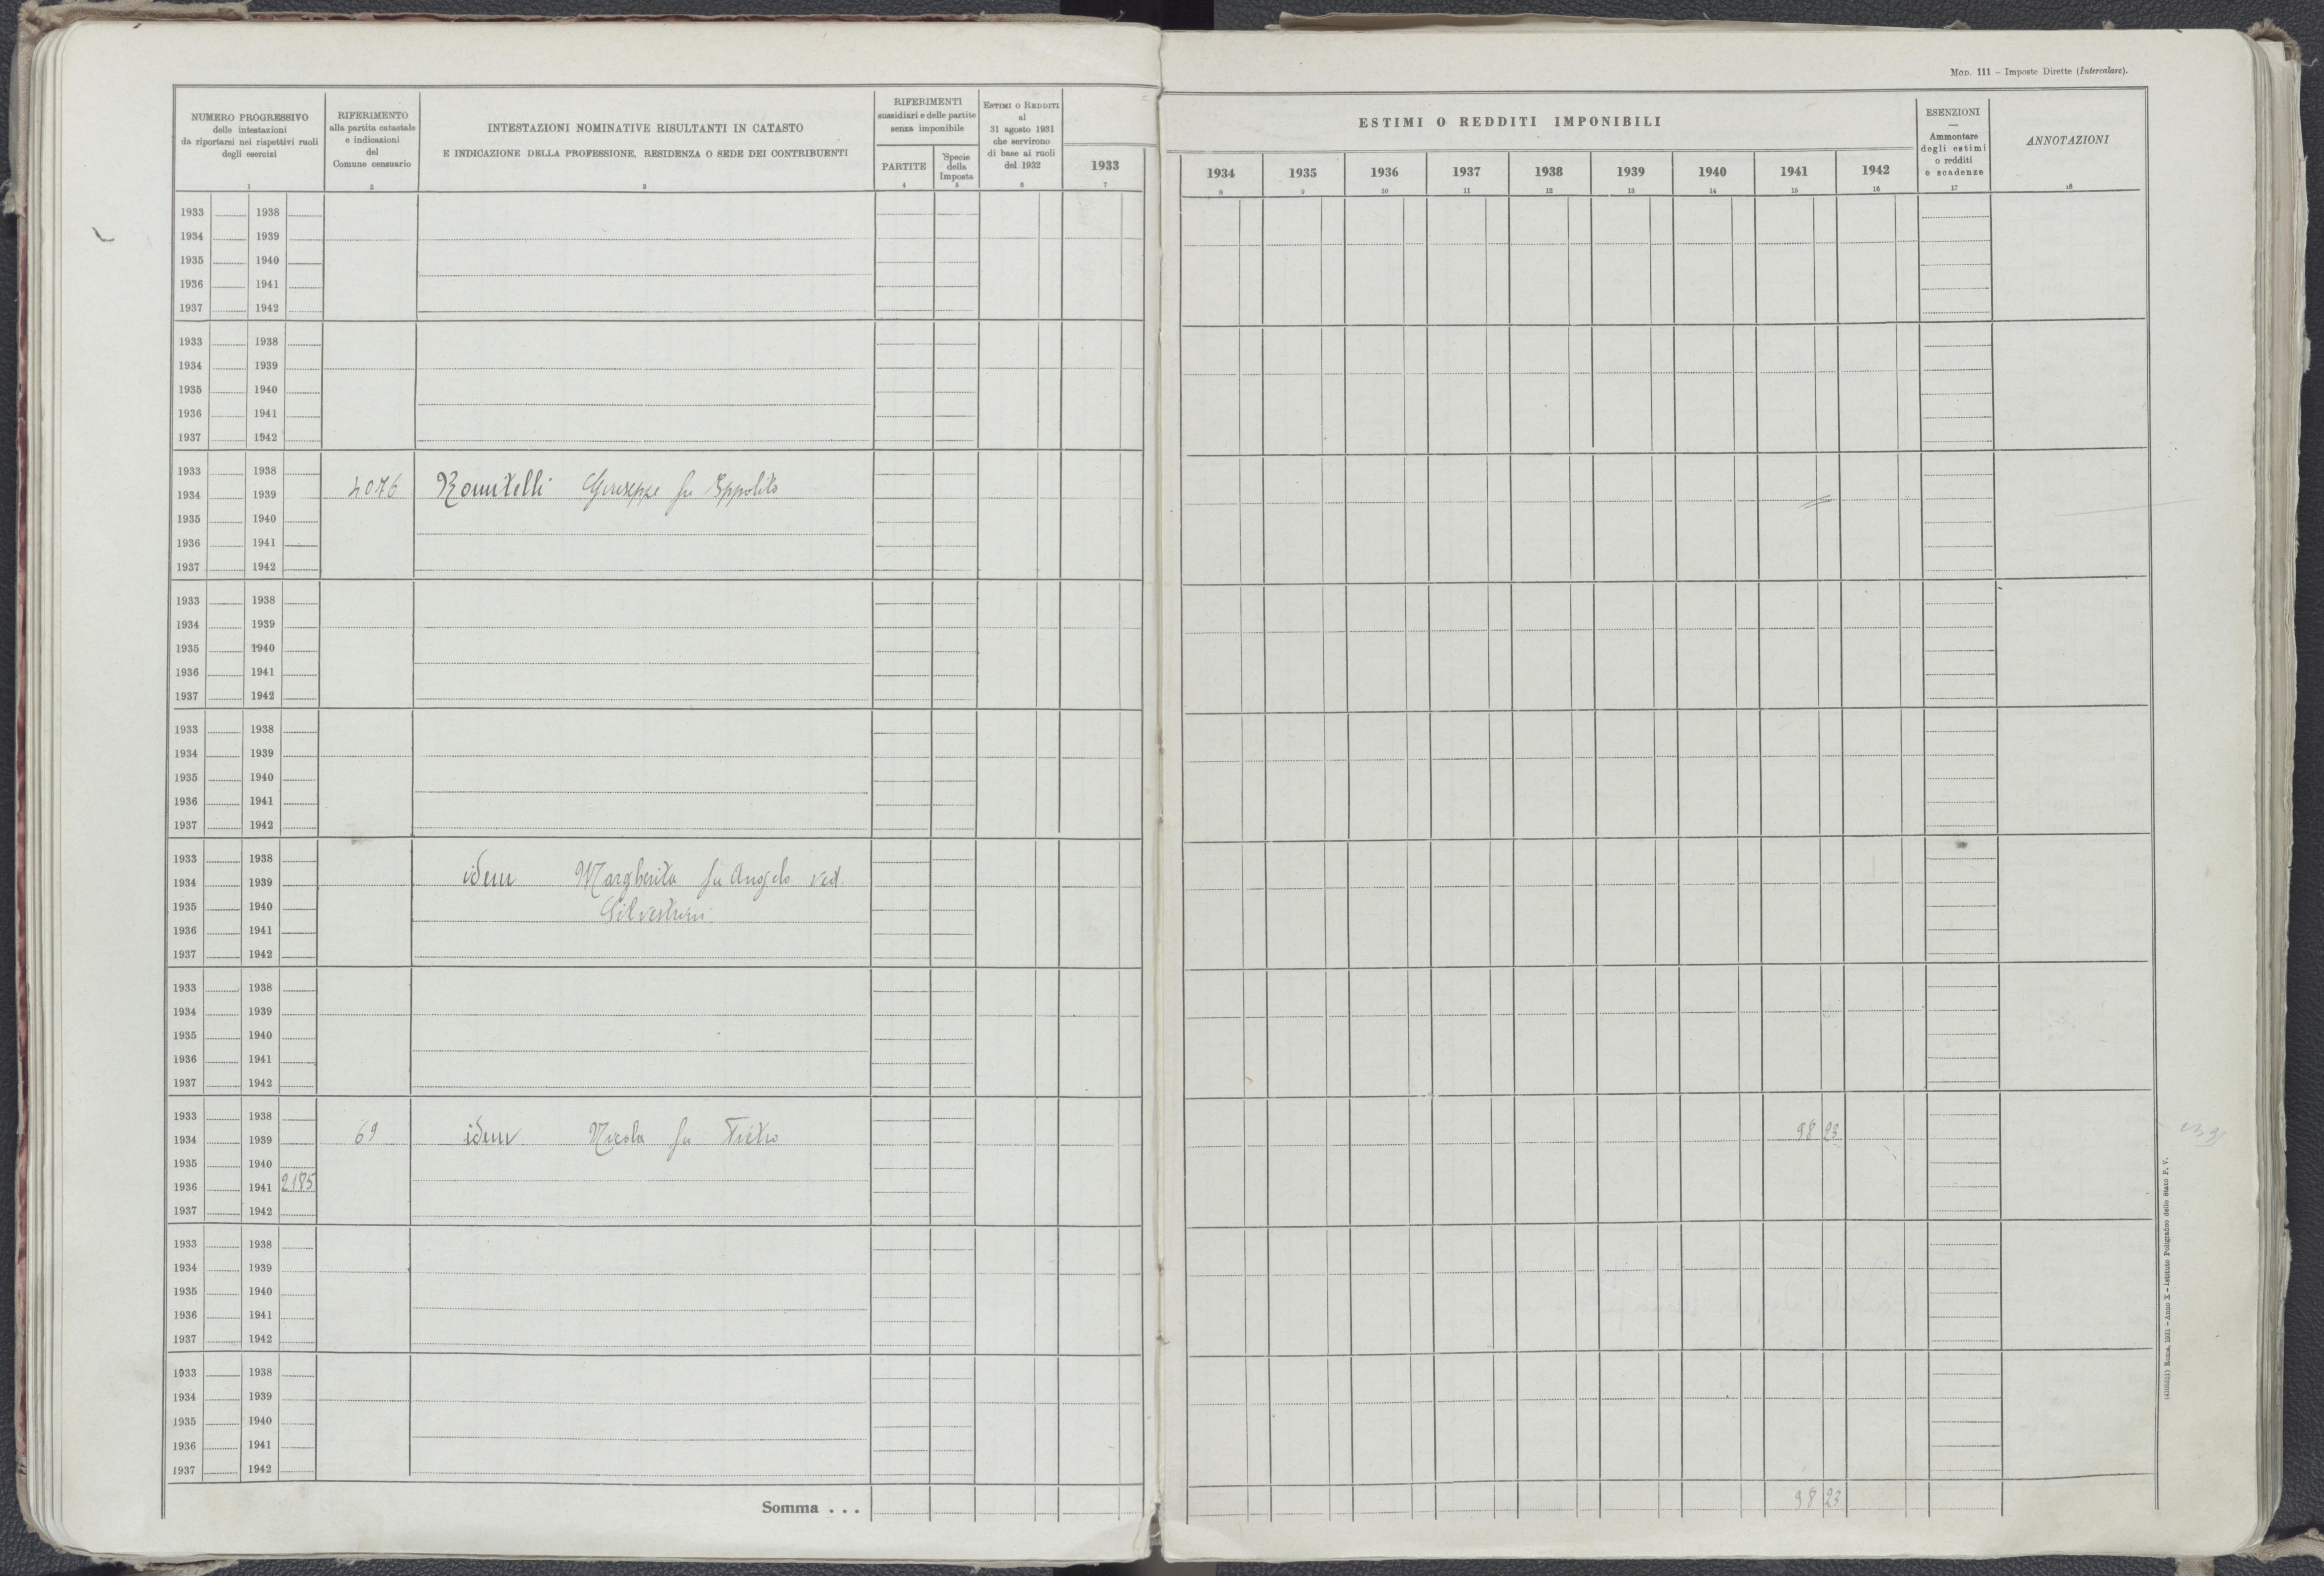 MOD. 111 – Imposte Dirette (Intercalare).
NUMERO PROGRESSIVO
delle intestazioni
da riportarsi nei rispettivi ruoli
degli esercizi
1
RIFERIMENTO
alla partita catastale
e indicazioni
del
Comune censuario
2
INTESTAZIONI NOMINATIVE RISULTANTI IN CATASTO
E INDICAZIONE DELLA PROFESSIONE, RESIDENZA O SEDE DEI CONTRIBUENTI
3
RIFERIMENTI
sussidiari e delle partite
senza imponibile
PARTITE
4
Specie
della
Imposta
5
ESTIMI O REDDITI
al
31 agosto 1931
che servirono
di base ai ruoli
del 1932
6
1933
7
ESTIMI O REDDITI IMPONIBILI
1934 1935 1936 1937 1938 1939 1940 1941 1942
8 9 10 11 12 13 14 15 16
ESENZIONI
—
Ammontare
degli estimi
o redditi
e scadenze
17
ANNOTAZIONI
18
1933 1938
1934 1939
1935 1940
1936 1941
1937 1942
1933 1938
1934 1939
1935 1940
1936 1941
1937 1942
1933 1938
1934 1939 4076 Romitelli Giuseppe fu Eppolito
1935 1940
1936 1941
1937 1942
1933 1938
1934 1939
1935 1940
1936 1941
1937 1942
1933 1938
1934 1939
1935 1940
1936 1941
1937 1942
1933 1938
1934 1939 idem Margherita fu Angelo ved.
1935 1940 Silvestrini
1936 1941
1937 1942
1933 1938
1934 1939
1935 1940
1936 1941
1937 1942
1933 1938
1934 1939 69 idem Nicola fu Pietro 98 23
1935 1940
1936 1941 2185
1937 1942
1933 1938
1934 1939
1935 1940
1936 1941
1937 1942
1933 1938
1934 1939
1935 1940
1936 1941
1937 1942
Somma . . . 98 23
Roma, 1931 – Anno X – Istituto Poligrafico dello Stato P. V.